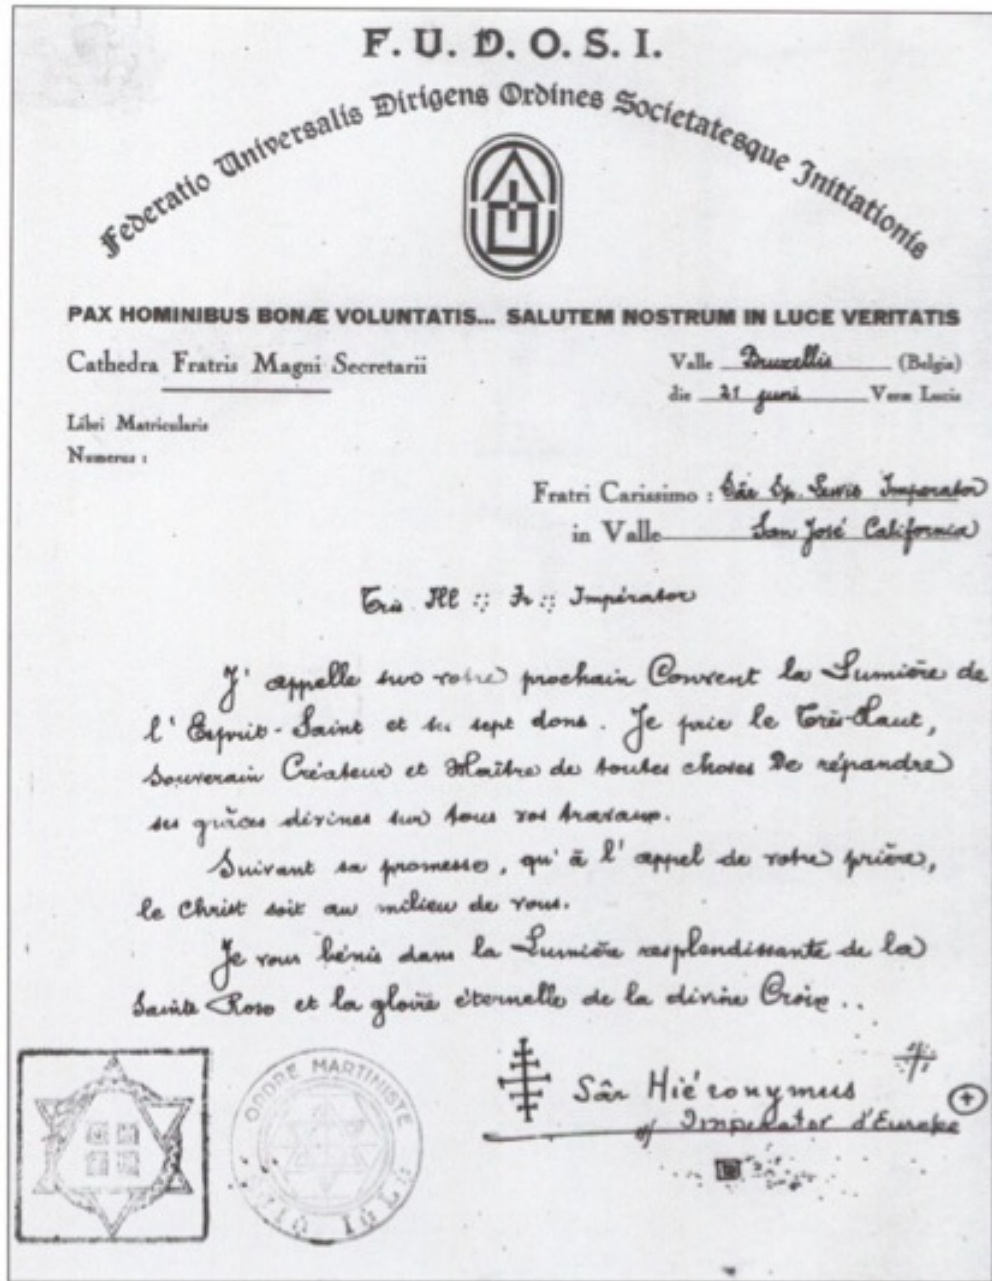 F. U. D. O. S. I.
Federatio Universalis Dirigens Ordines Societatesque Initiationis
PAX HOMINIBUS BONÆ VOLUNTATIS... SALUTEM NOSTRUM IN LUCE VERITATIS
Cathedra Fratris Magni Secretarii
Valle Bruxellis (Belgia)
die 21 juni Veræ Lucis
Libri Matricularis
Numerus :
Fratri Carissimo : Sâr Sp. Lewis Imperator
in Valle San José California
Très Ill :: Fr :: Impérator
J'appelle sur votre prochain Convent la Lumière de
l'Esprit-Saint et ses sept dons. Je prie le Très-Haut,
Souverain Créateur et Maître de toutes choses De répandre
ses grâces divines sur tous vos travaux.
Suivant sa promesse, qu'à l'appel de votre prière,
le Christ soit au milieu de vous.
Je vous bénis dans la Lumière resplendissante de la
Sainte Rose et la gloire éternelle de la divine Croix..
ORDRE MARTINISTE
Sâr Hiéronymus
Imperator d'Europe